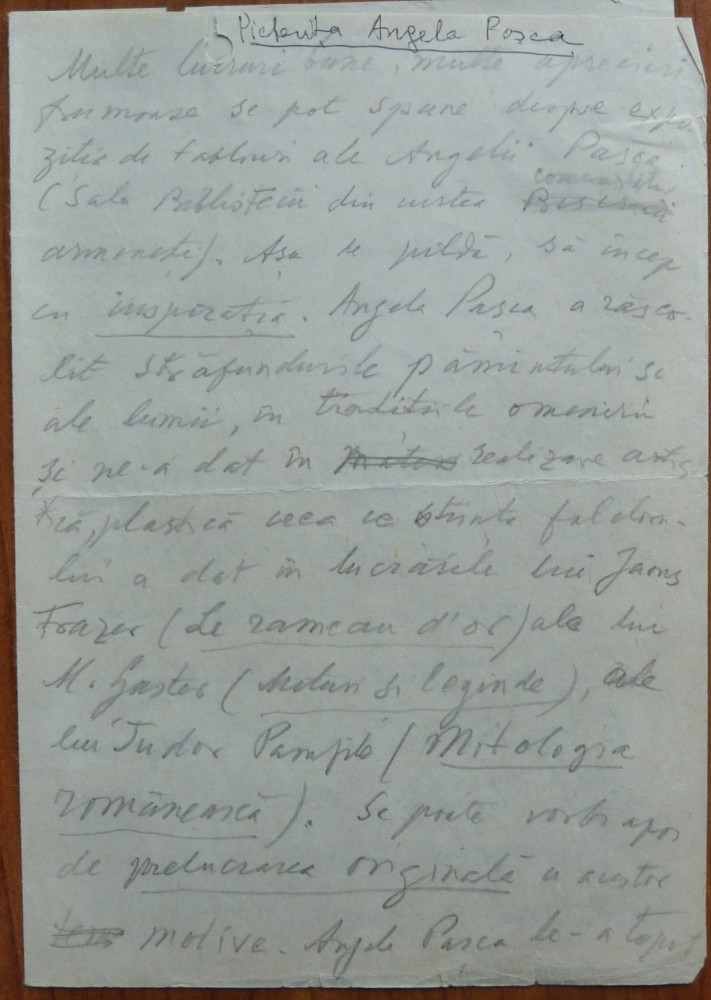 Pictorița Angela Pașca
Multe lucruri bune, multe aprecieri
frumoase se pot spune despre expo
ziția de tablouri ale Angelii Pașca
comunității
(Sala Bibliotecii din curtea
armenești). Așa de pildă, să încep
cu inspirația. Angela Pașca a răsco-
lit străfundurile pămîntului și
ale lumii, în tradițiile omenirii
și ne-a dat în realizare artis
tică, plastică ceea ce știința folcloru-
lui a dat în lucrările lui James
Frazer (Le rameau d'or) ale lui
M. Gaster (Mituri și legende), ale
lui Tudor Pamfile (Mitologia
românească). Se poate vorbi apoi
de prelucrarea originală a acestor
motive. Angela Pașca le-a topit